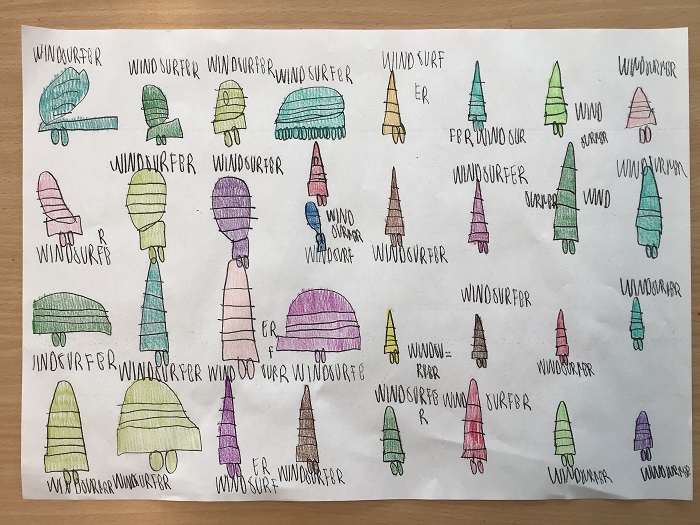 WINDSURFER
WINDSURFER
WINDSURFER
WINDSURFER
WINDSURF
ER
FER WINDSUR
WIND
SURFER
WINDSURFER
WINDSURFER
WINDSURFER
WIND
SURFER
WINDSURF
WINDSURFER
WINDSURFER
SURFER WIND
WINDSURFER
R
WINDSURFE
WINDSURFER
WINDSURFER
WINDSURFER
ER
F
SURR
WINDSURFE
WINDSU=
RFER
WINDSURFER
WINDSURFER
WINDSURFER
WIND
WINDSURFE
R
WIND SURFER
WINDSURFER
WINDSURFER
ER
WINDSURF
WINDSURFER
WINDSURFER
WINDSURFER